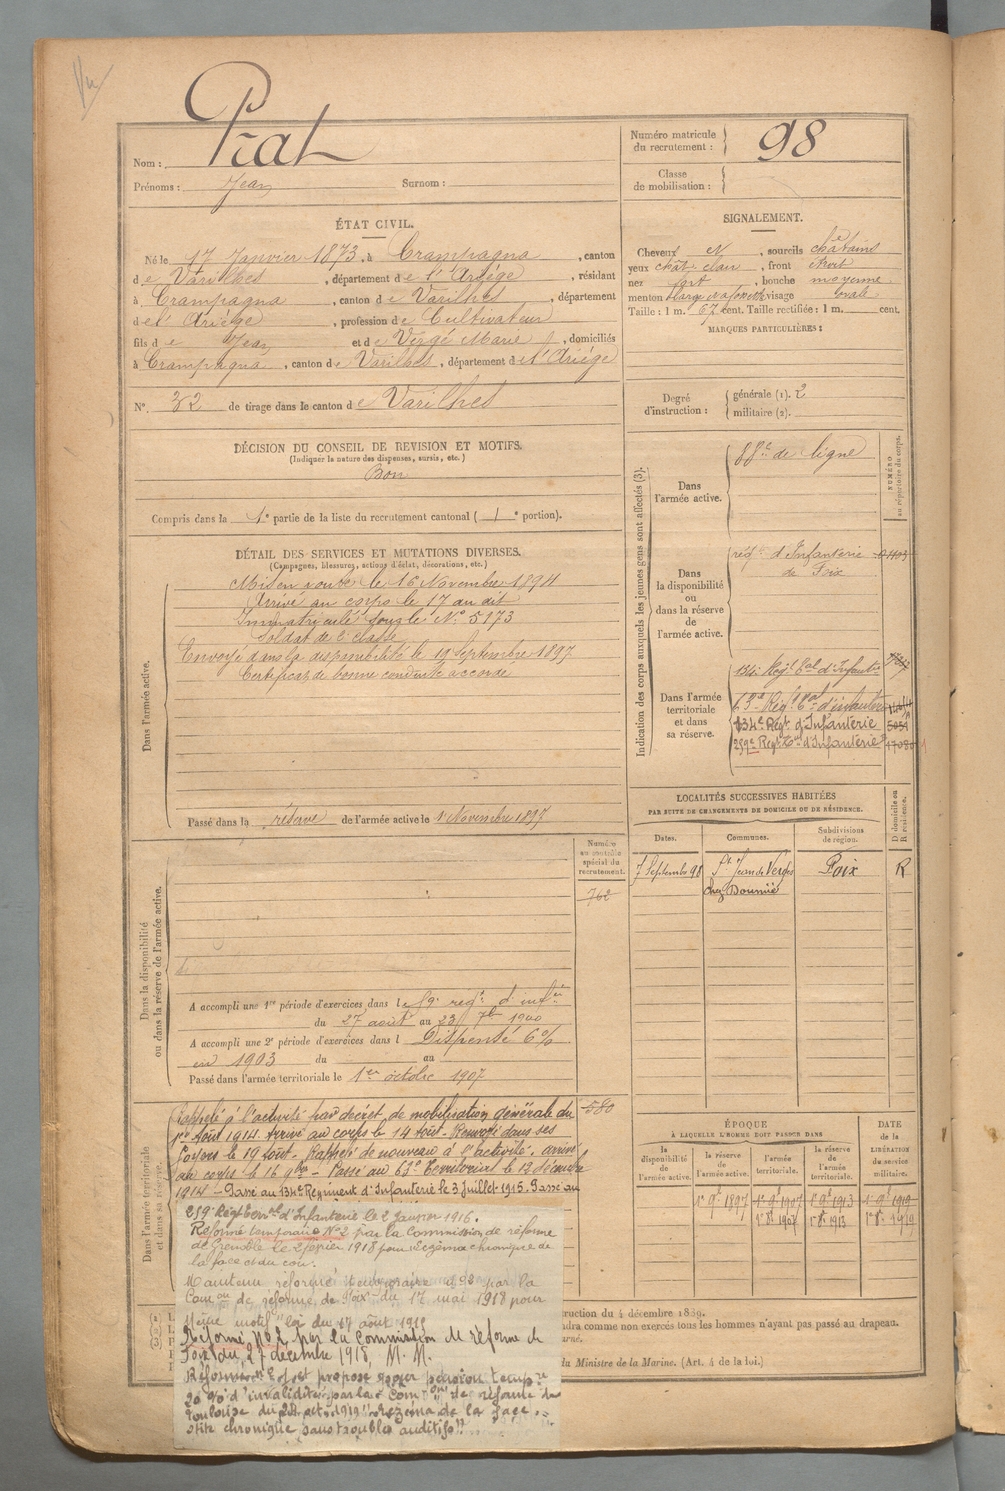 Nom : Prat
Prénoms : Jean Surnom :
Numéro matricule du recrutement : 98
Classe de mobilisation :
ÉTAT CIVIL.
Né le 17 Janvier 1873, à Crampagna, canton
de Varilhes, département de l'Ariège, résidant
à Crampagna, canton de Varilhes, département
de l'Ariège, profession de Cultivateur
fils de Jean et de Vergé Marie, domiciliés
à Crampagna, canton de Varilhes, département de l'Ariège
N° 32 de tirage dans le canton de Varilhes
SIGNALEMENT.
Cheveux et, sourcils châtains
yeux chat. clair, front étroit
nez fort, bouche moyenne
menton large visage ovale
Taille : 1 m. 67 cent. Taille rectifiée : 1 m. cent.
MARQUES PARTICULIÈRES :
Degré d'instruction : générale (1). 2
militaire (2).
DÉCISION DU CONSEIL DE REVISION ET MOTIFS.
(Indiquer la nature des dispenses, sursis, etc.)
Bon
Compris dans la 1e partie de la liste du recrutement cantonal ( 1e portion).
DÉTAIL DES SERVICES ET MUTATIONS DIVERSES.
(Campagnes, blessures, actions d'éclat, décorations, etc.)
Dans l'armée active.
Mis en route le 16 Novembre 1894
Arrivé au corps le 17 au dit
Immatriculé sous le N° 5173
Soldat de 2e classe
Envoyé dans la disponibilité le 19 Septembre 1897
Certificat de bonne conduite accordé
Passé dans la réserve de l'armée active le 1 Novembre 1897
Indication des corps auxquels les jeunes gens sont affectés (3).
NUMÉRO au répertoire du corps.
Dans l'armée active.
88e de ligne
Dans la disponibilité ou dans la réserve de l'armée active.
régt d'Infanterie
de Foix
Dans l'armée territoriale et dans sa réserve.
134e Régt Tal d'Infantie
63e Régt Tal d'infanterie
134e Régt d'Infanterie 5051
259e Régt Tal d'Infanterie
LOCALITÉS SUCCESSIVES HABITÉES
PAR SUITE DE CHANGEMENTS DE DOMICILE OU DE RÉSIDENCE.
Dates. Communes. Subdivisions de région. D domicile ou R résidence.
7 Septembre 98 St Jean de Verges Foix R
chez Doumiè
Dans la disponibilité ou dans la réserve de l'armée active.
Numéro au contrôle spécial du recrutement.
762
A accompli une 1re période d'exercices dans le 59e régt d'infie
du 27 août au 23 7bre 1900
A accompli une 2e période d'exercices dans l Dispensé 6%
en 1903 du au
Passé dans l'armée territoriale le 1er octobre 1907
Dans l'armée territoriale et dans sa réserve.
580
Rappelé à l'activité par décret de mobilisation générale du
1er Août 1914. Arrivé au corps le 14 Août. Renvoyé dans ses
foyers le 19 Août. Rappelé de nouveau à l'activité. arrivé
au corps le 16 9bre - Passé au 63e Territorial le 12 décembre
1914 - Passé au 134e Régiment d'Infanterie le 3 Juillet 1915. Passé au
259 Régt territal d'Infanterie le 2 Janvier 1916.
Réformé temporaire N°2 par la Commission de réforme
de Grenoble le 2 février 1918 pour eczéma chronique de
la face et du cou.
Maintenu réformé temporaire n°2 par la
Comon de réforme de Foix du 17 mai 1918 pour
même motif loi du 17 août 1915
Réformé N°2 par la Commission de réforme de
Foix du 27 décembre 1918, M. M.
Réformé et est proposé pour pension tempre
20 % d'invalidité par la Comon de réforme de
Toulouse du 28 oct. 1919 "eczéma de la face.
otite chronique sans troubles auditifs".
ÉPOQUE
À LAQUELLE L'HOMME DOIT PASSER DANS
la disponibilité de l'armée active. la réserve de l'armée active. l'armée territoriale. la réserve de l'armée territoriale.
DATE de la LIBÉRATION du service militaire.
1er 9bre 1897 1er 9bre 1907 1er 9bre 1913 1er 9bre 1919
1er 8bre 1907 1er 8bre 1913 1er 8bre 1919
ruction du 4 décembre 1889.
dra comme non exercés tous les hommes n'ayant pas passé au drapeau.
du Ministre de la Marine. (Art. 4 de la loi.)